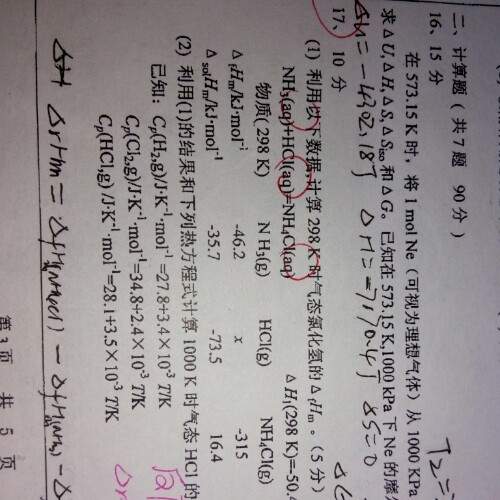 二、计算题（共7题 90分）
16、15分
在573.15K时，将1 mol Ne（可视为理想气体）从1000 KPa
求ΔU,ΔH,ΔS,ΔSiso和ΔG。已知在573.15 K,1000 kPa下Ne的摩
T2=
ΔS=0
17、10分
(1) 利用以下数据,计算298 K时气态氯化氢的ΔfHm。(5分)
NH3(aq)+HCl(aq)=NH4Cl(aq) ΔH1(298 K)=-50.4
物质(298 K) NH3(g) HCl(g) NH4Cl(g)
ΔfHm/kJ·mol-1 -46.2 x -315
ΔsolHm/kJ·mol-1 -35.7 -73.5 16.4
(2) 利用(1)的结果和下列热方程式计算1000 K时气态HCl的
已知：Cp(H2,g)/J·K-1·mol-1=27.8+3.4×10-3 T/K
Cp(Cl2,g)/J·K-1·mol-1=34.8+2.4×10-3 T/K
Cp(HCl,g)/J·K-1·mol-1=28.1+3.5×10-3 T/K
第3页 共5页